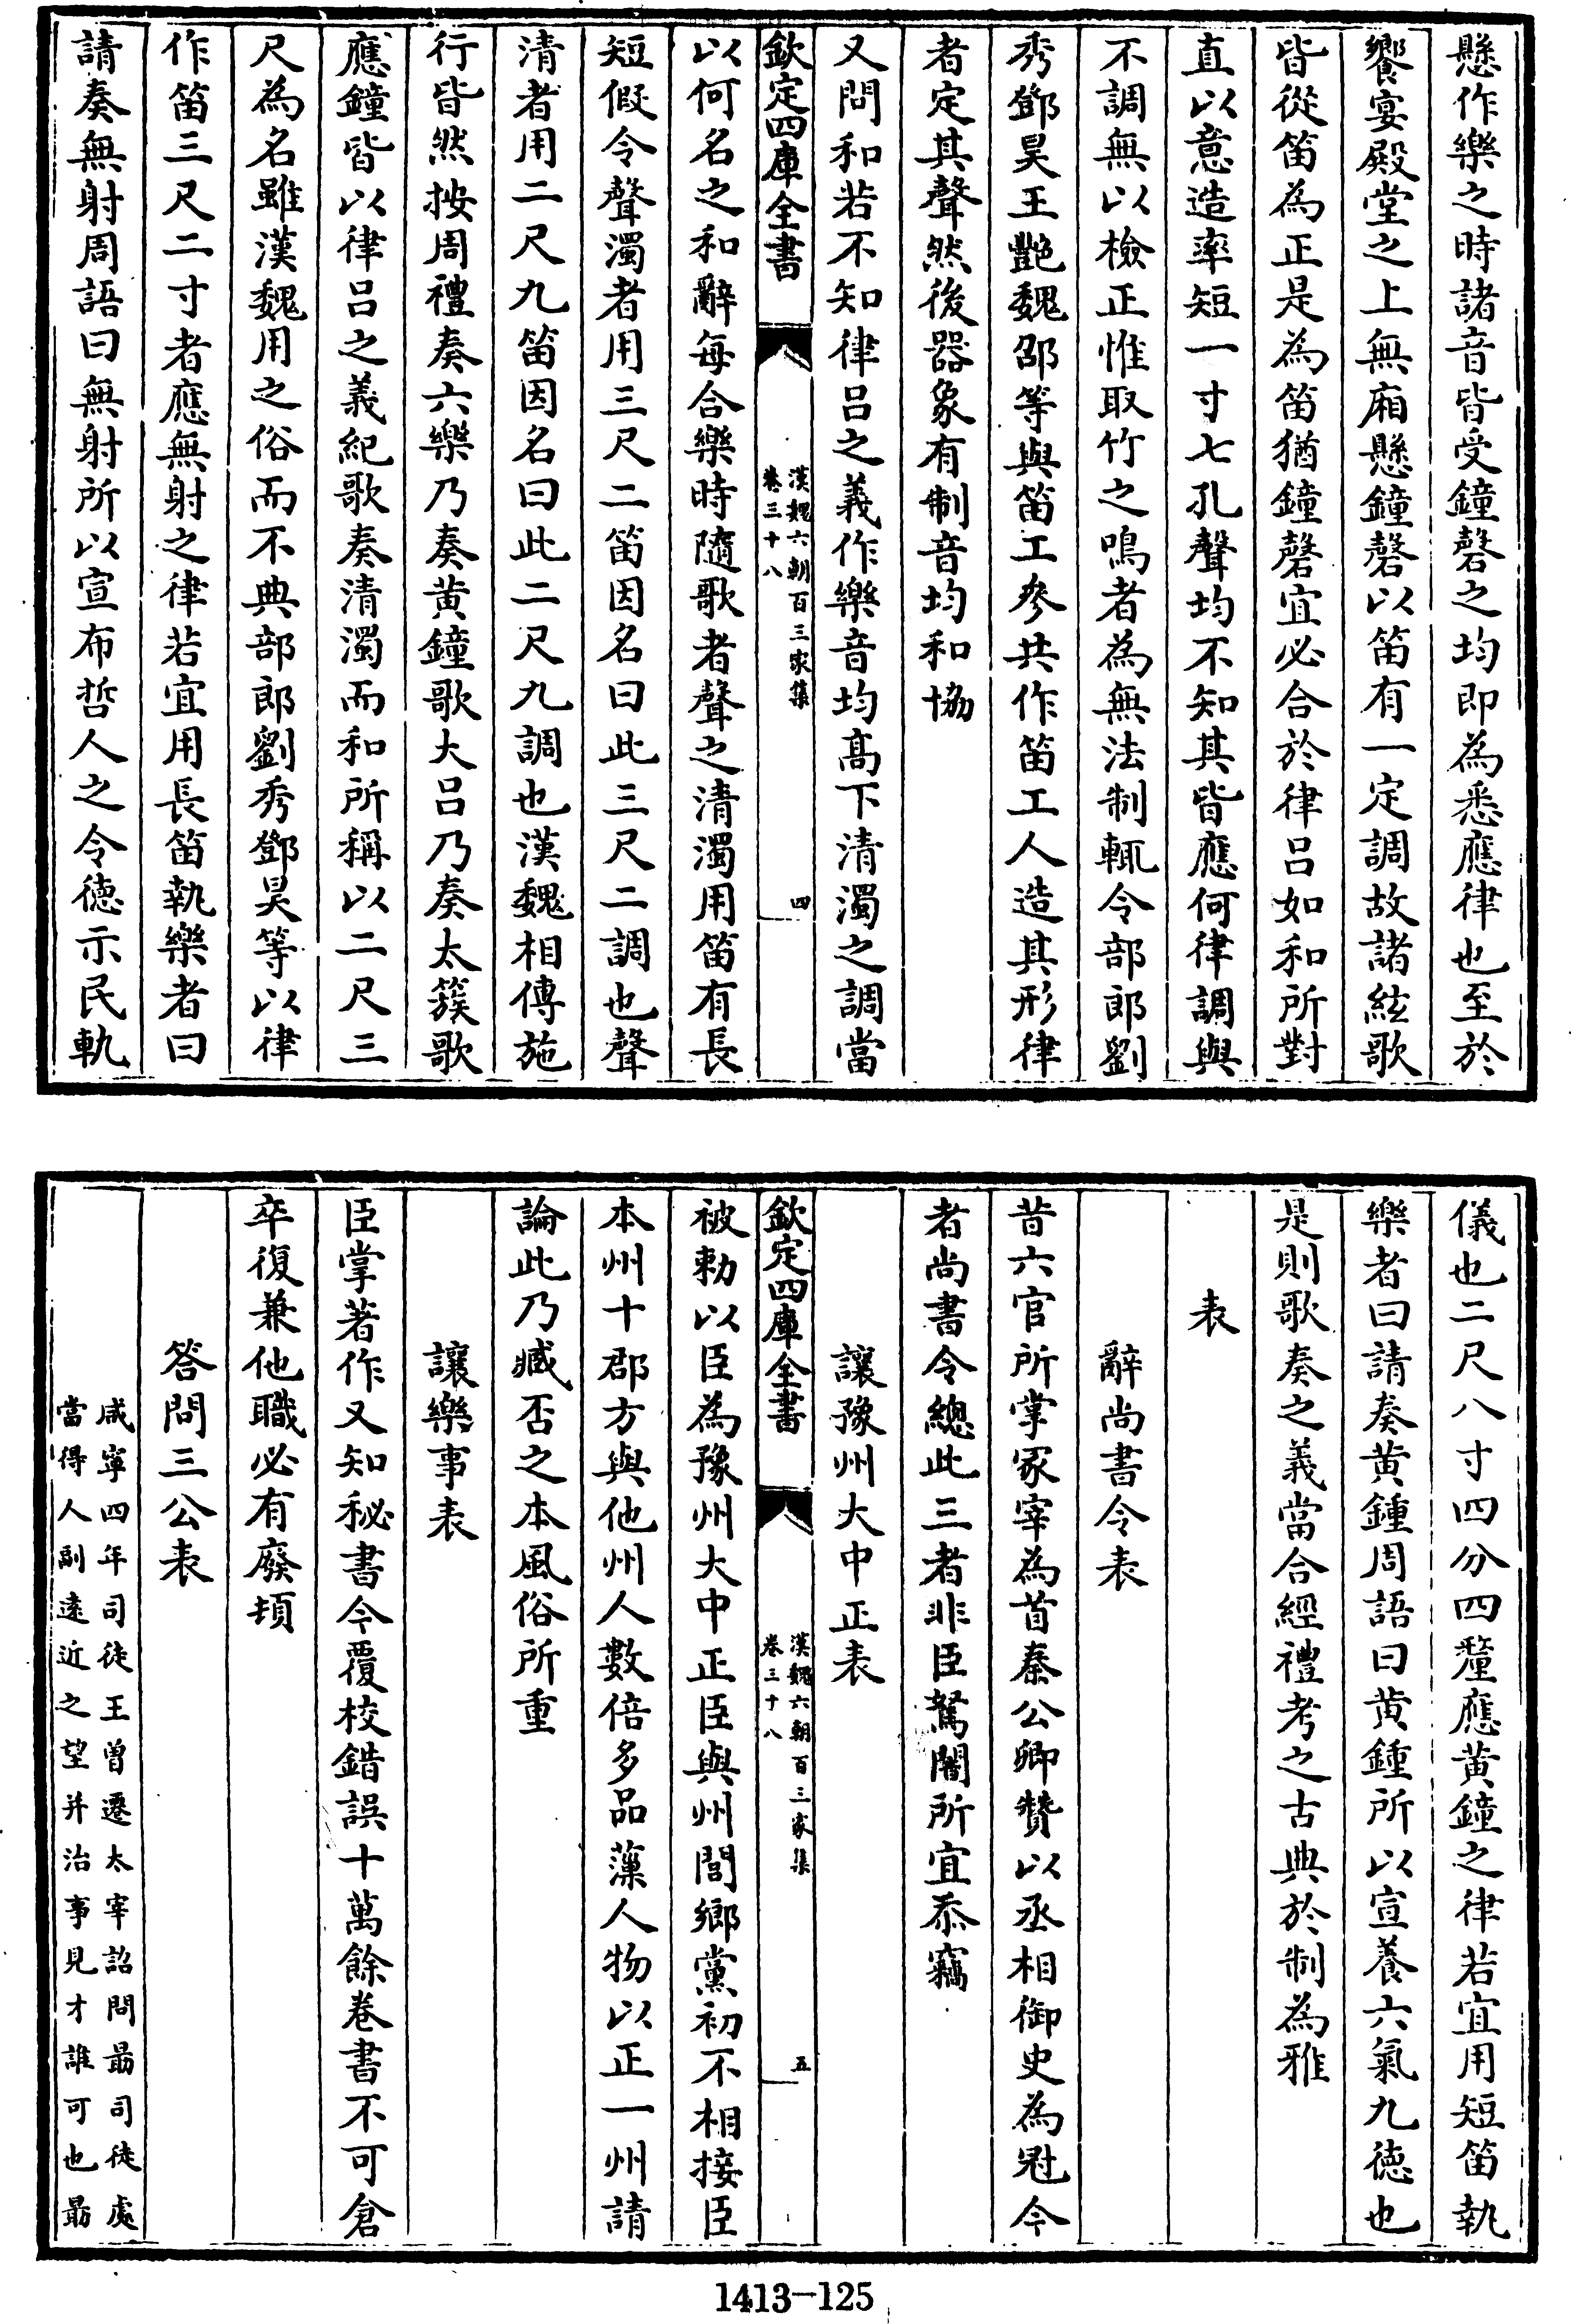 懸作樂之時諸音皆受鐘磬之均即為悉應律也至於
饗宴殿堂之上無廂懸鐘磬以笛有一定調故諸絃歌
皆從笛為正是為笛猶鐘磬宜必合於律呂如和所對
直以意造率短一寸七孔聲均不知其皆應何律調與
不調無以檢正惟取竹之鳴者為無法制輒令部郎劉
秀鄧昊王艷魏邵等與笛工參共作笛工人造其形律
者定其聲然後器象有制音均和協
又問和若不知律呂之義作樂音均髙下清濁之調當
欽定四庫全書
漢魏六朝百三家集
卷三十八
四
以何名之和辭每合樂時隨歌者聲之清濁用笛有長
短假令聲濁者用三尺二笛因名曰此三尺二調也聲
清者用二尺九笛因名曰此二尺九調也漢魏相傳施
行皆然按周禮奏六樂乃奏黄鐘歌大呂乃奏太簇歌
應鐘皆以律呂之義紀歌奏清濁而和所稱以二尺三
尺為名雖漢魏用之俗而不典部郎劉秀鄧昊等以律
作笛三尺二寸者應無射之律若宜用長笛執樂者曰
請奏無射周語曰無射所以宣布哲人之令德示民軌
儀也二尺八寸四分四釐應黄鐘之律若宜用短笛執
樂者曰請奏黄鍾周語曰黄鍾所以宣養六氣九德也
是則歌奏之義當合經禮考之古典於制為雅
表
辭尚書令表
昔六官所掌冢宰為首秦公卿贊以丞相御史為冠今
者尚書令總此三者非臣駑闇所宜忝竊
讓豫州大中正表
欽定四庫全書
漢魏六朝百三家集
卷三十八
五
被勅以臣為豫州大中正臣與州閭鄉黨初不相接臣
本州十郡方與他州人數倍多品藻人物以正一州請
論此乃臧否之本風俗所重
讓樂事表
臣掌著作又知秘書今覆校錯誤十萬餘卷書不可倉
卒復兼他職必有廢頓
答問三公表
咸寧四年司徒王曽遷太宰詔問勗司徒處
當得人副逺近之望并治事見才誰可也勗
1413-125